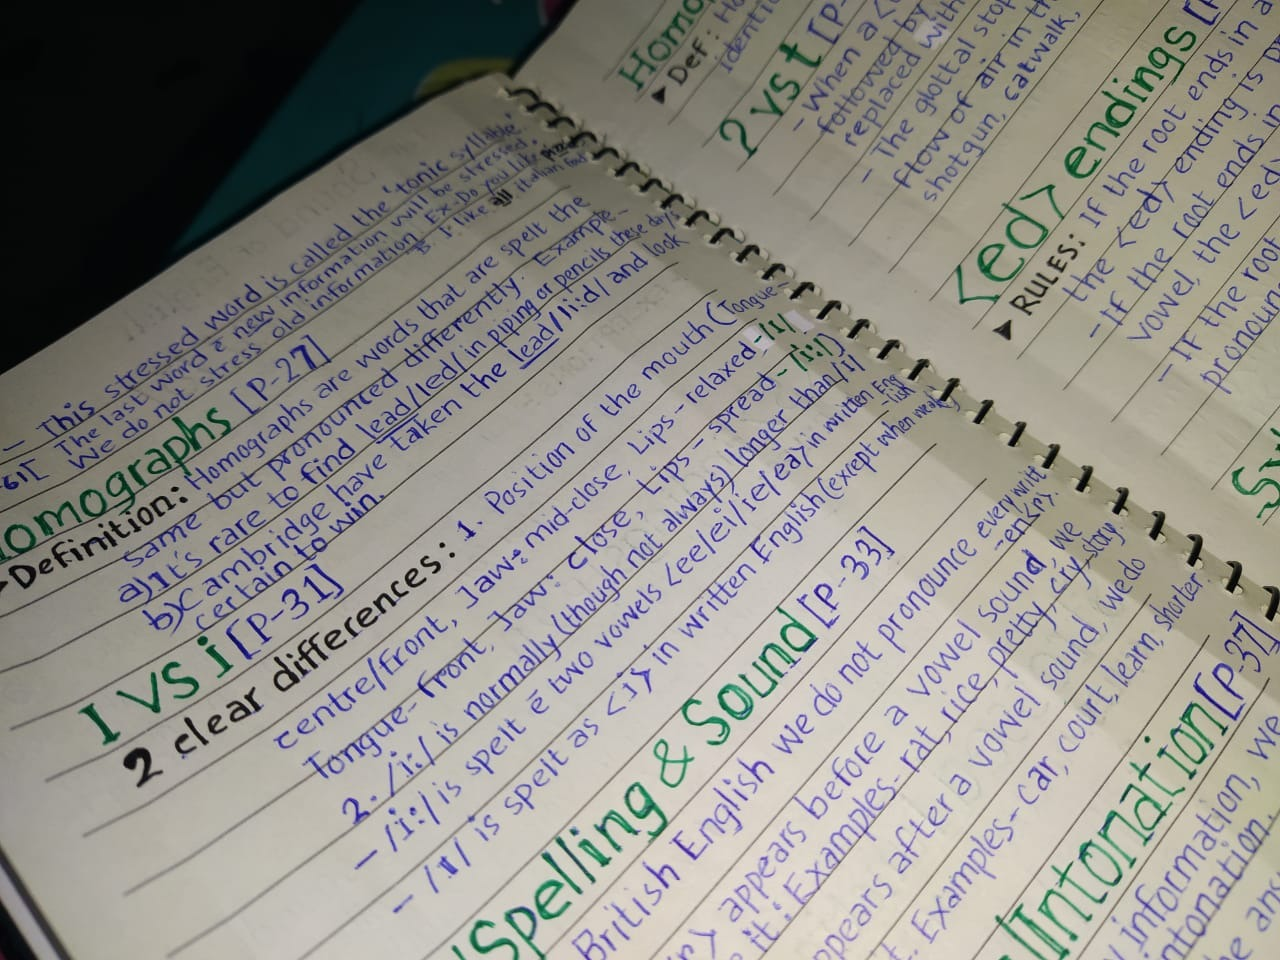 - This stressed word is called the 'tonic syllable'.
The last word c̄ new information will be stressed.
We do not stress old information! Ex-Do you like
B. I like all italian food
omographs [P-27]
Definition: Homographs are words that are spelt the
same but pronounced differently. Example-
a) It's rare to find lead/led/ in piping or pencils these days
b) Cambridge have taken the lead/li:d/ and look
certain to win.
I vs i [P-31]
2 clear differences: 1. Position of the mouth (Tongue-
centre/front, Jaw: mid-close, Lips-relaxed-/ɪ/
Tongue-front, Jaw: close, Lips-spread-/i:/)
2. /i:/ is normally (though not always) longer than /ɪ/
- /i:/ is spelt c̄ two vowels <ee/ei/ie/ea> in written English
- /ɪ/ is spelt as <i> in written English (except when weak)
Spelling & Sound [P-33]
British English we do not pronounce every writt
-en <r>.
r> appears before a vowel sound, we
it. Examples-rat, rice, pretty, cry, story
ppears after a vowel sound, we do
t. Examples-car, court, learn, shorter.
/Intonation [P-37]
information, we
ntonation.
Homo
Def: Ho
identi
ʔ vs t [P-
- When a <
followed by
replaced with
- The glottal stop
flow of air in th
shotgun, catwalk,
<ed> endings [P
RULES: If the root ends in a
the <ed> ending is p
- If the root ends in
vowel, the <ed>
- If the root
pronoun
Sy